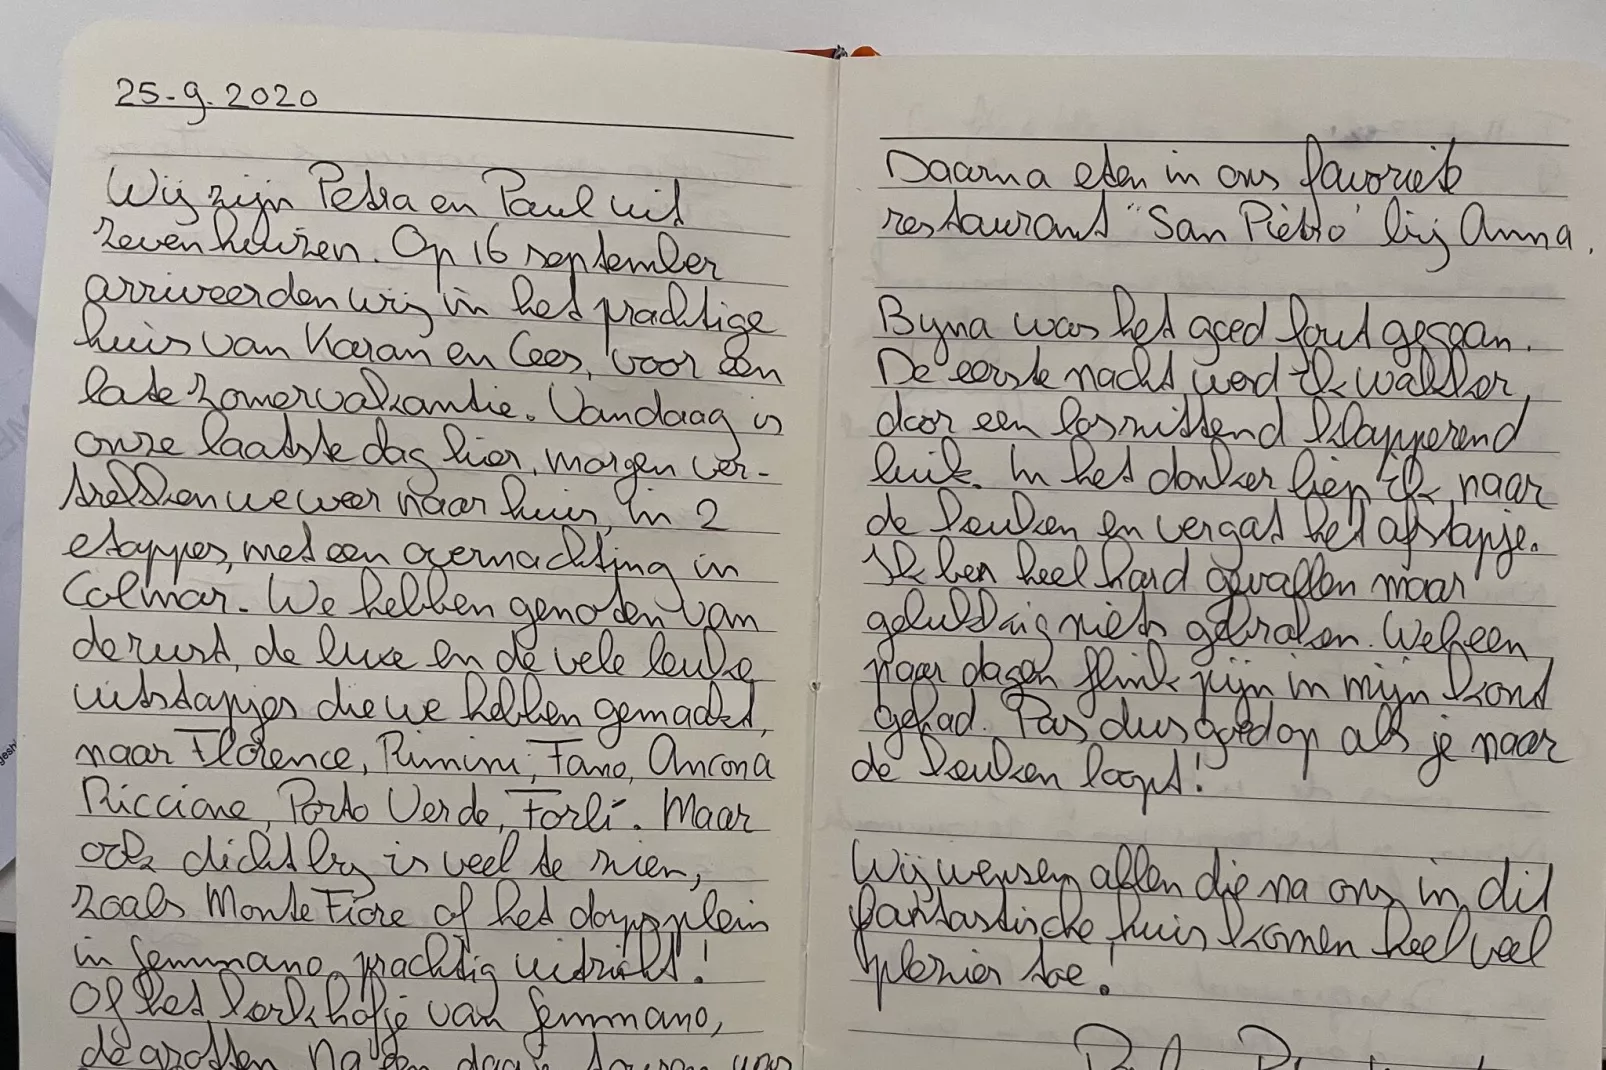 25-9-2020
Wij zijn Petra en Paul uit
Zevenhuizen. Op 16 september
arriveerden wij in het prachtige
huis van Karan en Cees, voor een
late zomervakantie. Vandaag is
onze laatste dag hier, morgen ver-
trekken we weer naar huis, in 2
etappes, met een overnachting in
Colmar. We hebben genoten van
de rust, de luxe en de vele leuke
uitstapjes die we hebben gemaakt,
naar Florence, Rimini, Fano, Ancona
Riccione, Porto Verde, Forlí. Maar
ook dichtby is veel te zien,
zoals Monte Fiore of het dorpsplein
in Gemmano, prachtig uitzicht!
Of het kerkhofje van Gemmano,
de grotten Na een dagje
Daarna eten in ons favoriete
restaurant "San Pietro" bij Anna.
Byna was het goed fout gegaan.
De eerste nacht werd ik wakker,
door een loszittend klapperend
luik. In het donker liep ik naar
de keuken en vergat het afstapje.
Ik ben heel hard gevallen maar
gelukkig niets gebroken. Wel een
paar dagen flink pijn in mijn kont
gehad. Pas dus goed op als je naar
de keuken loopt!
Wij wensen allen die na ons in dit
fantastische huis komen heel veel
plezier toe!